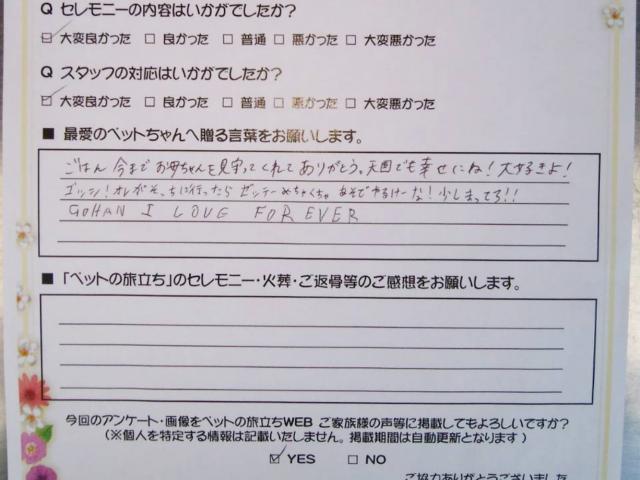 Q セレモニーの内容はいかがでしたか?
☑ 大変良かった □ 良かった □ 普通 □ 悪かった □ 大変悪かった
Q スタッフの対応はいかがでしたか?
☑ 大変良かった □ 良かった □ 普通 □ 悪かった □ 大変悪かった
■ 最愛のペットちゃんへ贈る言葉をお願いします。
ごはん 今まで お母ちゃんを見守ってくれて ありがとう。天国でも幸せにね!大好きよ!
ゴッシ!オレがそっちに行ったら ゼッテーめちゃくちゃ あそでやるけーな!少しまってろ!!
GOHAN I LOVE FOREVER
■ 「ペットの旅立ち」のセレモニー・火葬・ご返骨等のご感想をお願いします。
今回のアンケート・画像をペットの旅立ちWEB ご家族様の声等に掲載してもよろしいですか?
(※個人を特定する情報は記載いたしません。掲載期間は自動更新となります)
☑ YES □ NO
ご協力ありがとうございました